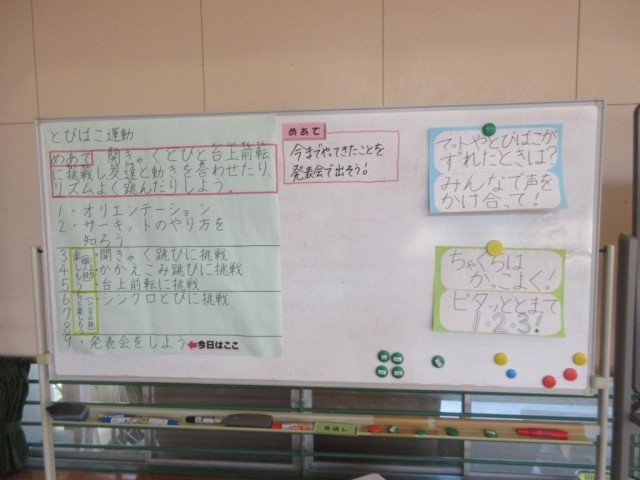 とびばこ運動
めあて 開きゃくとびと台上前転
に挑戦し友達と動きを合わせたり、
リズムよく跳んだりしよう。
1・オリエンテーション
2・サーキットのやり方を
知ろう
3・開きゃく跳びに挑戦
4・かかえこみ跳びに挑戦
5・台上前転に挑戦
6・シンクロとびに挑戦
7
8
9・発表会をしよう ←今日はここ
めあて
今までやってきたことを
発表会で出そう!
マットやとびばこが
ずれたときは?
みんなで声を
かけ合って!
ちゃくちは
かっこよく!
ピタッととまって
1・2・3!
見通し